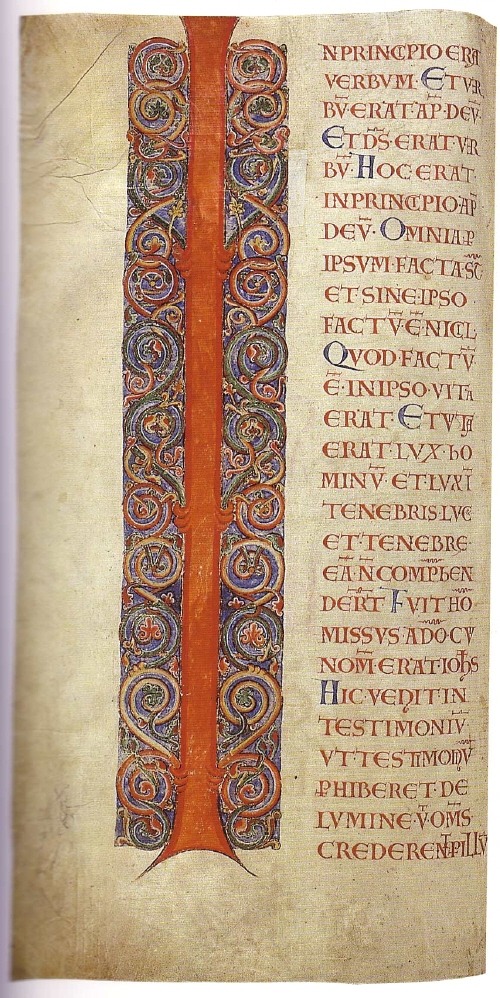 NPRINCIPIO ERA
VERBVM· ET VER
BV̄· ERAT AP· DEV̄·
ET D̄S· ERAT VER
BV̄· HOC ERAT·
IN PRINCIPIO AP̄
DEV̄· OMNIA P̄
IPSVM· FACTA ST̄
ET SINE IPSO
FACTV̄· Ē· NICL
QVOD FACTV̄
Ē· IN IPSO· VITA
ERAT· ET VITA
ERAT· LVX· HO
MINV̄· ET LVX Ī
TENEBRIS· LVC
ET TENEBRE·
EA N̄ COMPHEN
DERT̄ FVIT HO
MISSVS· A DO CV̄
NOM̄· ERAT IOHS
HIC· VENIT IN
TESTIMONIV̄·
VT TESTIMONIV̄
PHIBERET· DE
LVMINE· V̄· OMS
CREDERENT P ILLV̄